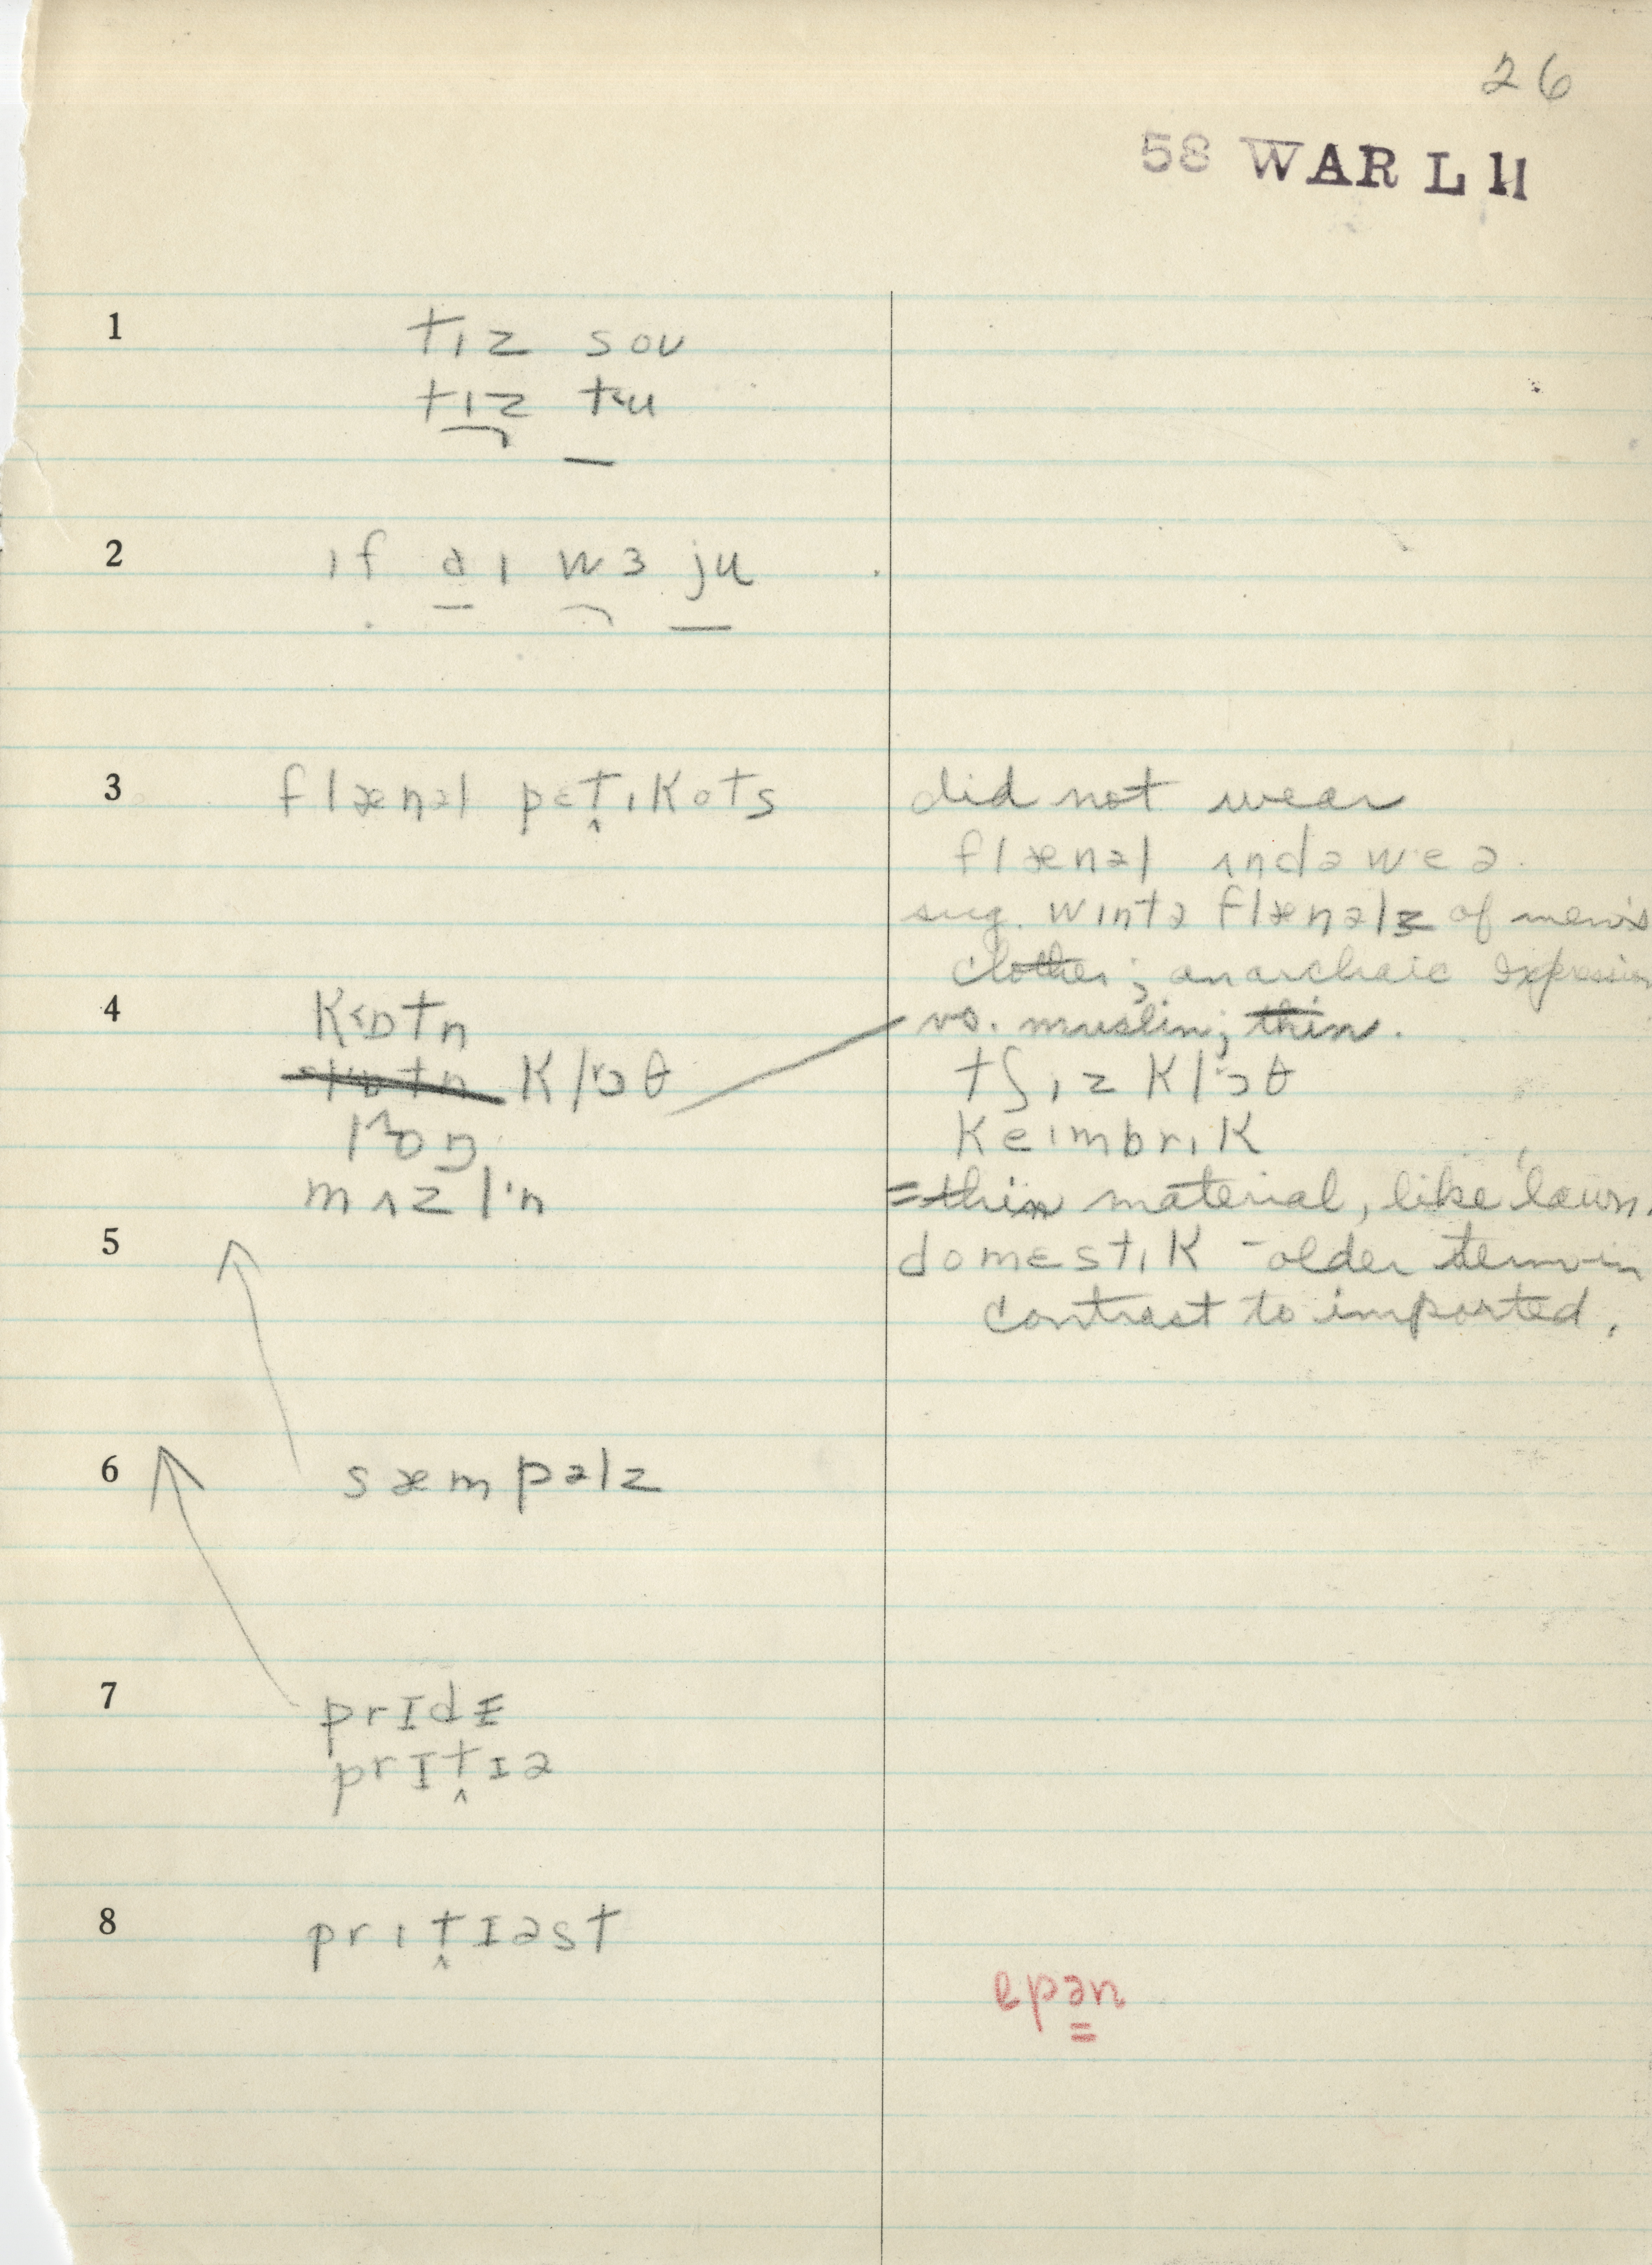 26
58 WAR L 11
1 tɪz soʊ
tɪz tu
2 ɪf aɪ wɜ ju
3 flænəl pɛt̬ɪkots did not wear
flænəl ʌndəwɛə.
sug. wɪntə flænəlz of men's
clothes; an archaic expression
4 kɒtn vs. muslin; thin.
klɔθ tʃɪz klɔθ
lɒŋ keɪmbrɪk
mʌzlɪn = thin material, like lawn.
5 domɛstɪk - older term in
contrast to imported.
6 sæmpəlz
7
prɪt̬ɪə
8 prɪt̬ɪəst
epən